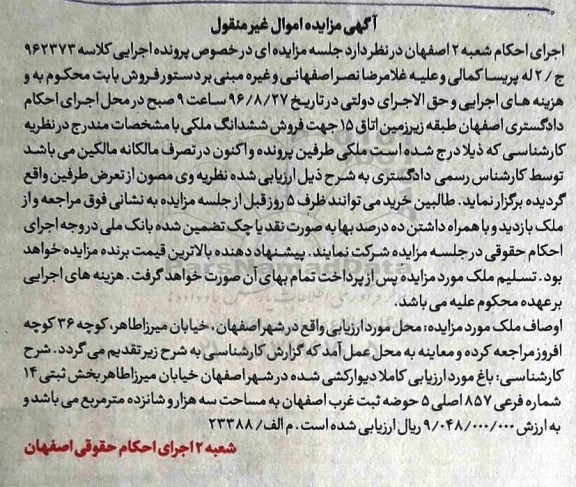 آگهی مزایده اموال غیر منقول
اجرای احکام شعبه ۲ اصفهان در نظر دارد جلسه مزایده ای در خصوص پرونده اجرایی کلاسه ۹۶۲۳۷۳
ج/۲ له پریسا کمالی و علیه غلامرضا نصر اصفهانی و غیره مبنی بر دستور فروش بابت محکوم به و
هزینه های اجرایی و حق الاجرای دولتی در تاریخ ۹۶/۸/۲۷ ساعت ۹ صبح در محل اجرای احکام
دادگستری اصفهان طبقه زیرزمین اتاق ۱۵ جهت فروش ششدانگ ملکی با مشخصات مندرج در نظریه
کارشناسی که ذیلا درج شده است ملکی طرفین پرونده و اکنون در تصرف مالکانه مالکین می باشد
توسط کارشناس رسمی دادگستری به شرح ذیل ارزیابی شده نظریه وی مصون از تعرض طرفین واقع
گردیده برگزار نماید. طالبین خرید می توانند ظرف ۵ روز قبل از جلسه مزایده به نشانی فوق مراجعه و از
ملک بازدید و با همراه داشتن ده درصد بها به صورت نقد یا چک تضمین شده بانک ملی در وجه اجرای
احکام حقوقی در جلسه مزایده شرکت نمایند. پیشنهاد دهنده بالاترین قیمت برنده مزایده خواهد
بود. تسلیم ملک مورد مزایده پس از پرداخت تمام بهای آن صورت خواهد گرفت. هزینه های اجرایی
بر عهده محکوم علیه می باشد.
اوصاف ملک مورد مزایده: محل مورد ارزیابی واقع در شهر اصفهان، خیابان میرزا طاهر، کوچه ۳۶ کوچه
افروز مراجعه کرده و معاینه به محل عمل آمد که گزارش کارشناسی به شرح زیر تقدیم می گردد. شرح
کارشناسی: باغ مورد ارزیابی کاملا دیوارکشی شده در شهر اصفهان خیابان میرزا طاهر بخش ثبتی ۱۴
شماره فرعی ۸۵۷ اصلی ۵ حوضه ثبت غرب اصفهان به مساحت سه هزار و شانزده مترمربع می باشد و
به ارزش ۹/۰۴۸/۰۰۰/۰۰۰ ریال ارزیابی شده است. م الف/ ۲۳۳۸۸
شعبه ۲ اجرای احکام حقوقی اصفهان